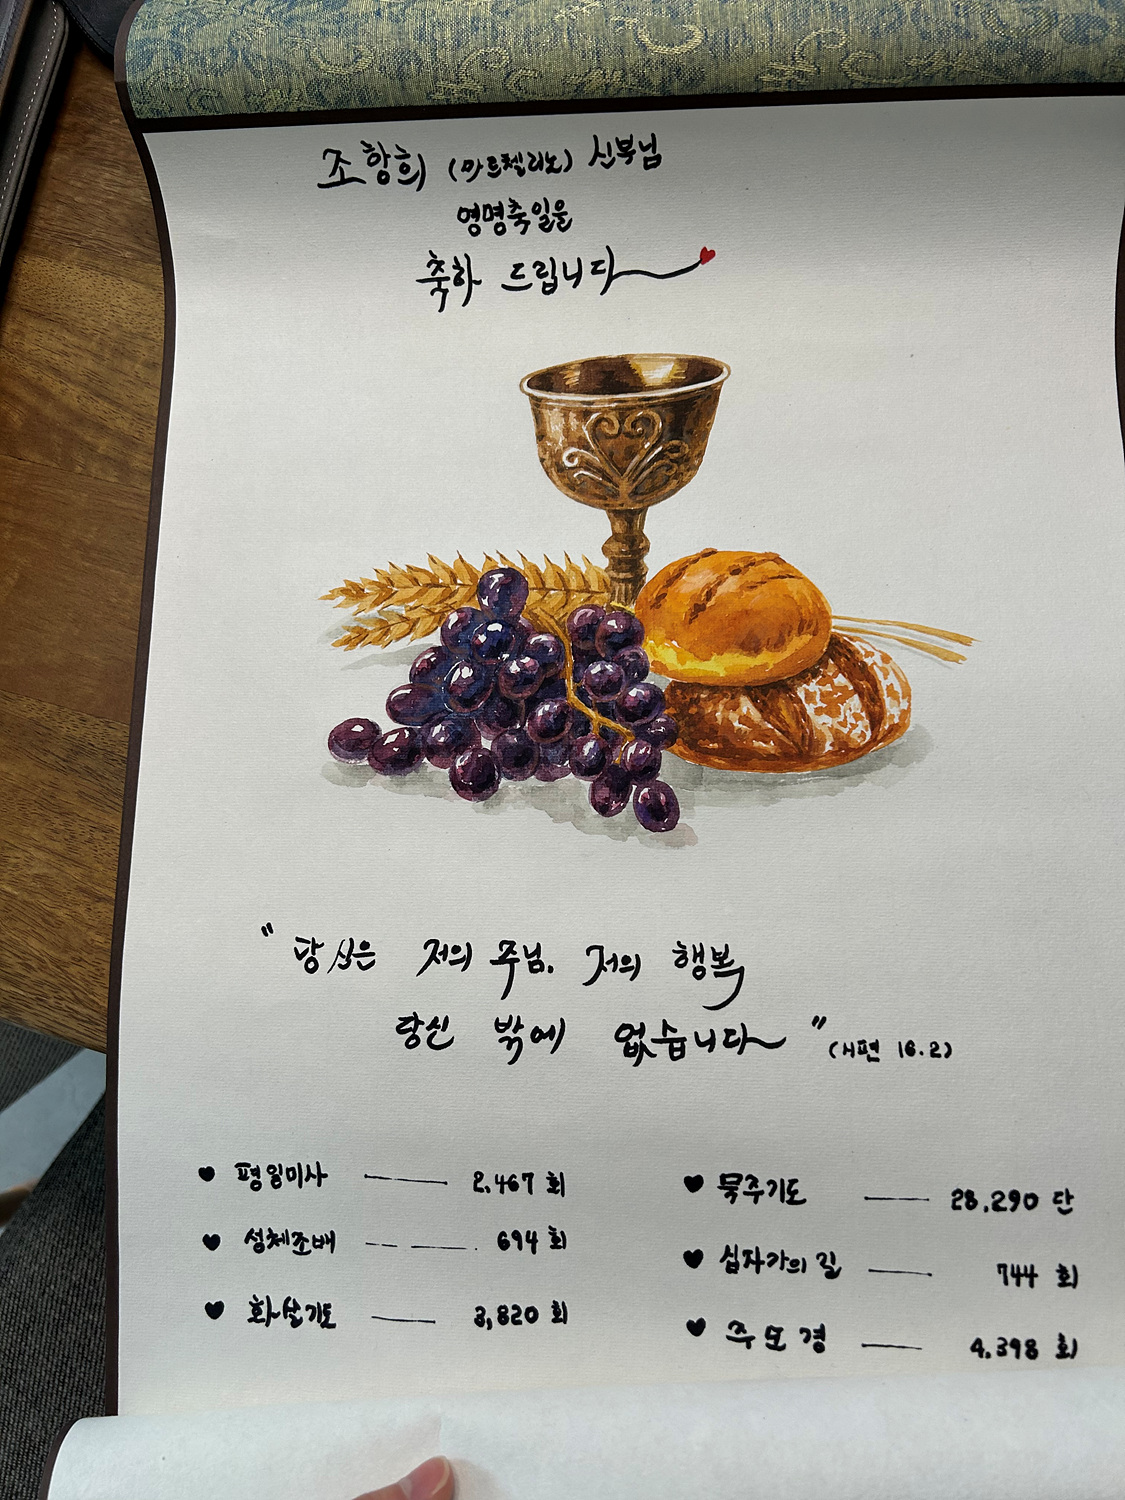 조항희 (마르첼리노) 신부님
영명축일을
축하 드립니다
"당신은 저의 주님. 저의 행복
당신 밖에 없습니다" (시편 16.2)
♥ 평일미사 — 2,467 회
♥ 성체조배 — 694 회
♥ 화살기도 — 3,820 회
♥ 묵주기도 — 28,290 단
♥ 십자가의 길 — 744 회
♥ 주모경 — 4,398 회